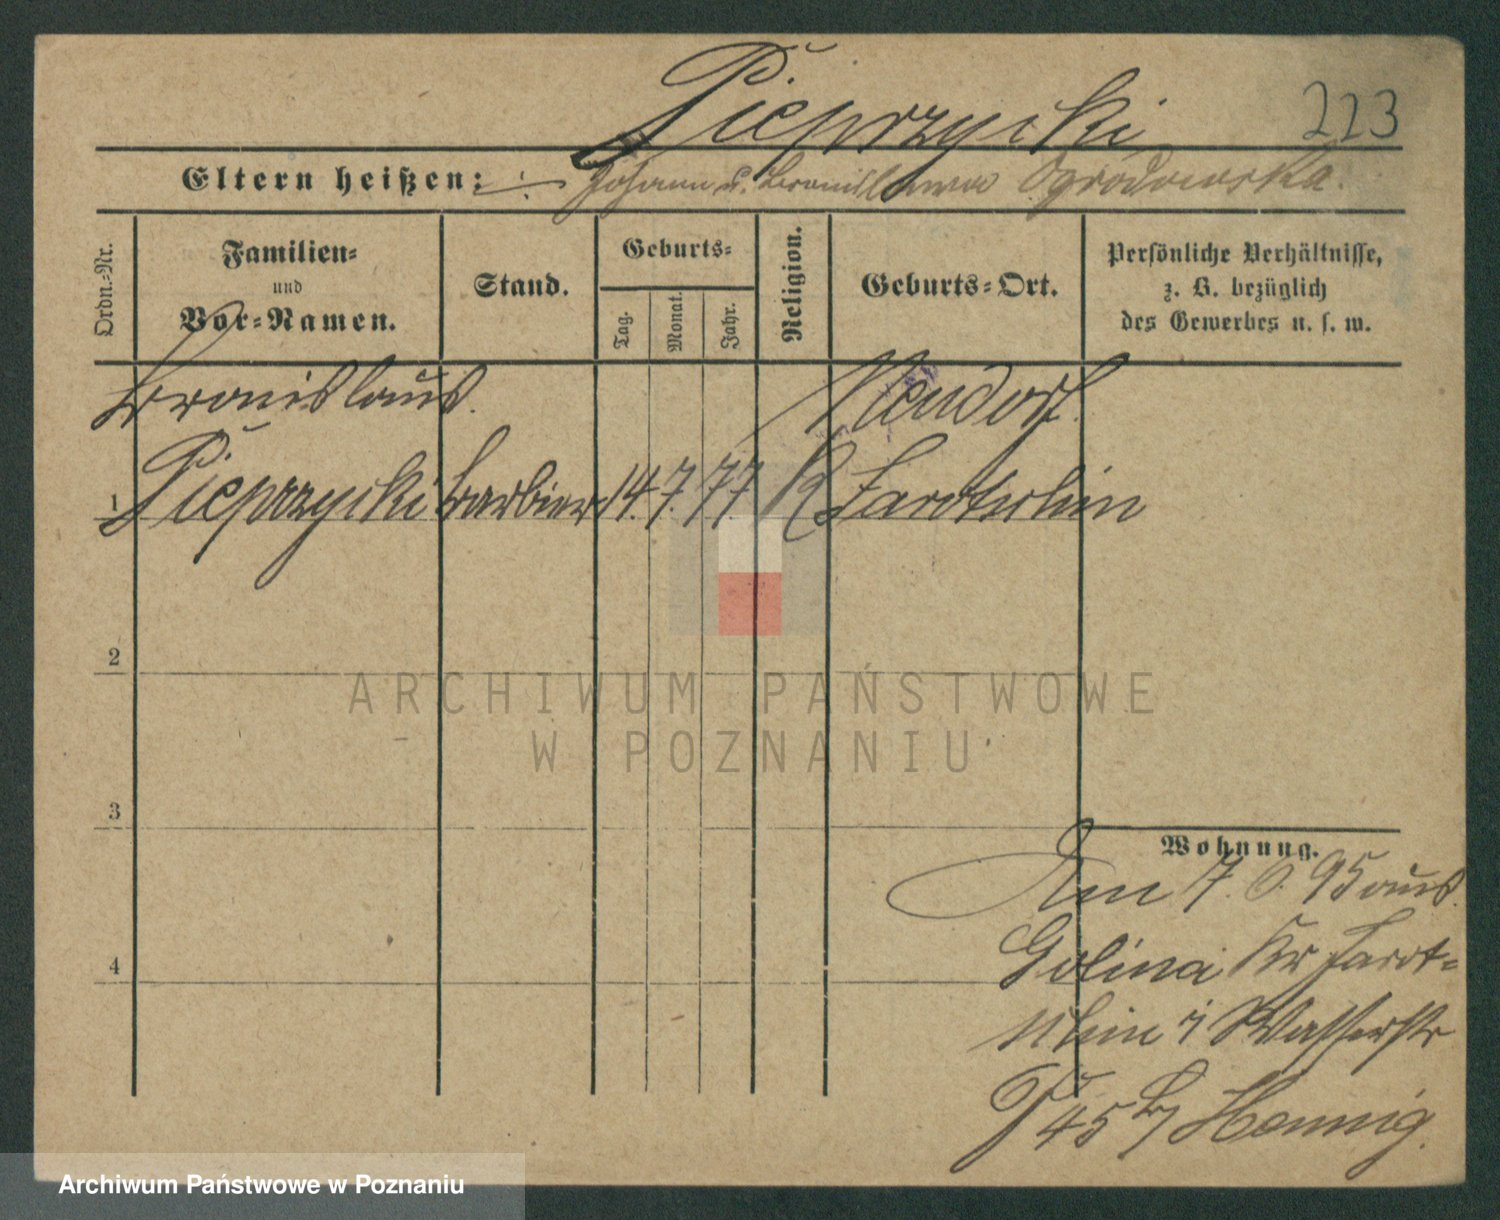 Pieprzycki
223
Eltern heißen: Johann u. Bronislawa Ogrodowska.
Ordn.-Nr.
Familien-
und
Vor-Namen.
Stand.
Geburts-
Tag.
Monat.
Jahr.
Religion.
Geburts-Ort.
Persönliche Verhältnisse,
z. B. bezüglich
des Gewerbes u. s. w.
Bronislaus Neudorf
1 Pieprzycki Barbier 14. 7. 77 K Jarotschin
2
3
4
Wohnung.
Am 7. 6. 95 aus
Golina Kr Jarot-
schin Wasserstr
45 Hennig.
ARCHIWUM PAŃSTWOWE
W POZNANIU
Archiwum Państwowe w Poznaniu